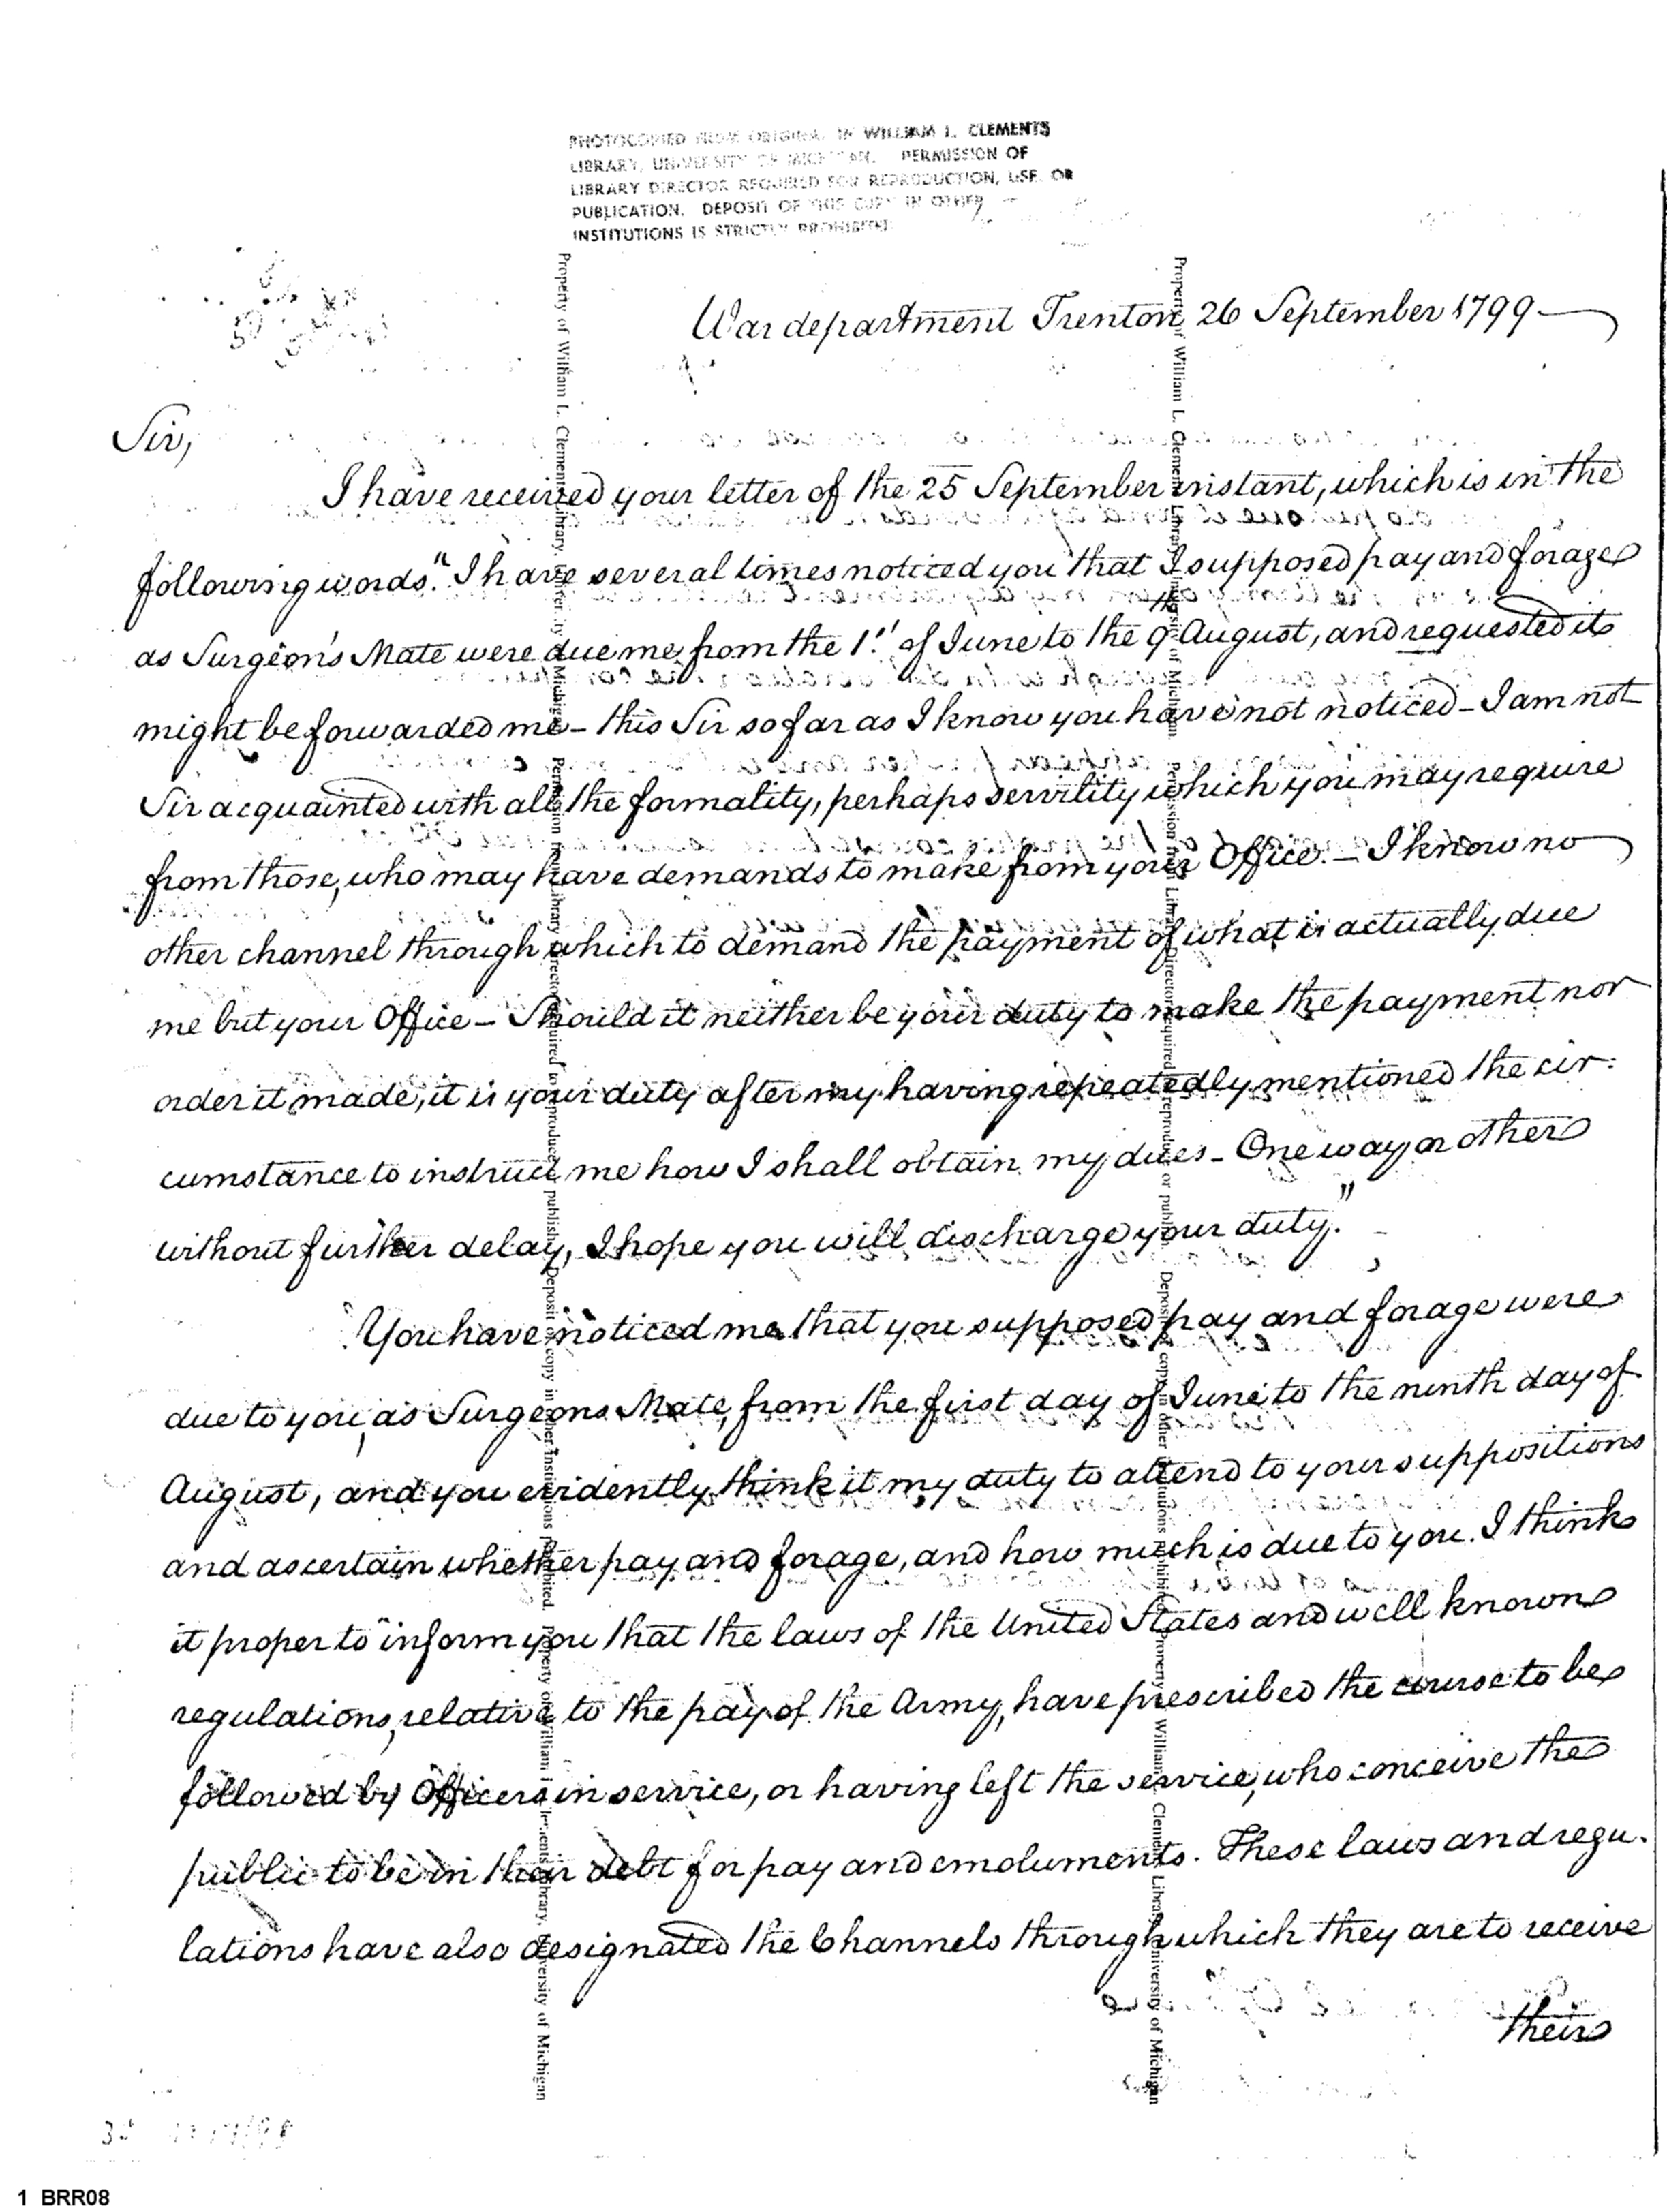 PHOTOCOPIED FROM ORIGINAL IN WILLIAM L. CLEMENTS
LIBRARY, UNIVERSITY OF MICHIGAN. PERMISSION OF
LIBRARY DIRECTOR REQUIRED FOR REPRODUCTION, USE, OR
PUBLICATION. DEPOSIT OF THIS COPY IN OTHER
INSTITUTIONS IS STRICTLY PROHIBITED.
War department Trenton 26 September 1799
Sir,
I have received your letter of the 25 September instant, which is in the
following words. "I have several times noticed you that I supposed pay and forage
as Surgeon's Mate were due me from the 1st of June to the 9th August, and requested it
might be forwarded me – this Sir so far as I know you have not noticed – I am not
Sir acquainted with all the formality, perhaps servility which you may require
from those, who may have demands to make from your Office. – I know no
other channel through which to demand the payment of what is actually due
me but your Office – Should it neither be your duty to make the payment nor
order it made, it is your duty after my having repeatedly mentioned the cir:
cumstance to instruct me how I shall obtain my dues – One way or other
without further delay, I hope you will discharge your duty."
You have noticed me that you supposed pay and forage were
due to you, as Surgeons Mate, from the first day of June to the ninth day of
August, and you evidently think it my duty to attend to your suppositions
and ascertain whether pay and forage, and how much is due to you. I think
it proper to inform you that the laws of the United States and well known
regulations, relative to the pay of the Army, have prescribed the course to be
followed by Officers in service, or having left the service, who conceive the
public to be in their debt for pay and emoluments. These laws and regu.
lations have also designated the Channels through which they are to receive
their
Property of William L. Clements Library, University of Michigan. Permission of Library Director required to reproduce or publish. Deposit of copy in other institutions prohibited. Property of William L. Clements Library, University of Michigan
Property of William L. Clements Library, University of Michigan. Permission of Library Director required to reproduce or publish. Deposit of copy in other institutions prohibited. Property of William L. Clements Library, University of Michigan
1 BRR08